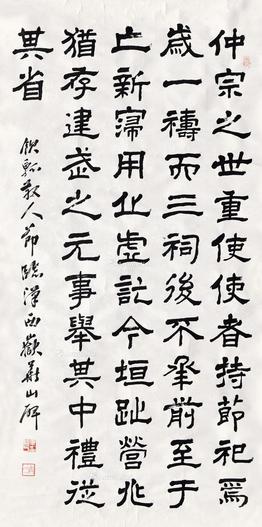 仲宗之世重使使者持節祀焉
歲一禱而三祠後不承前至于
亡新寖用丘虚訖今垣趾營兆
猶存建武之元事舉其中禮從
其省
散人節臨漢西嶽華山碑